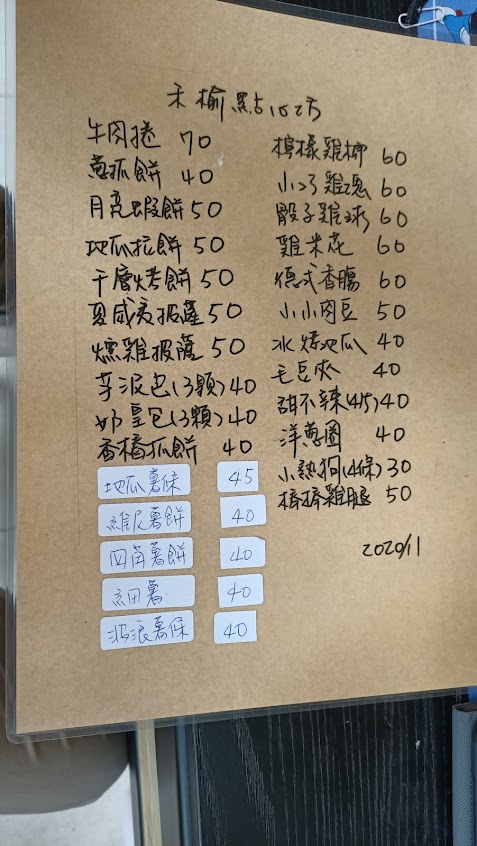 禾榆點心坊
牛肉捲 70
蔥抓餅 40
月亮蝦餅 50
地瓜拉餅 50
千層烤餅 50
夏威夷披薩 50
燻雞披薩 50
芋泥包(3顆) 40
奶皇包(3顆) 40
香橘抓餅 40
地瓜薯條 45
維尼薯餅 40
四角薯餅 40
細薯 40
波浪薯條 40
檸檬雞柳 60
小叮雞塊 60
骰子雞球 60
雞米花 60
德式香腸 60
小小肉豆 50
冰烤地瓜 40
毛豆夾 40
甜不辣(4片) 40
洋蔥圈 40
小熱狗(4條) 30
棒棒雞腿 50
2020/11